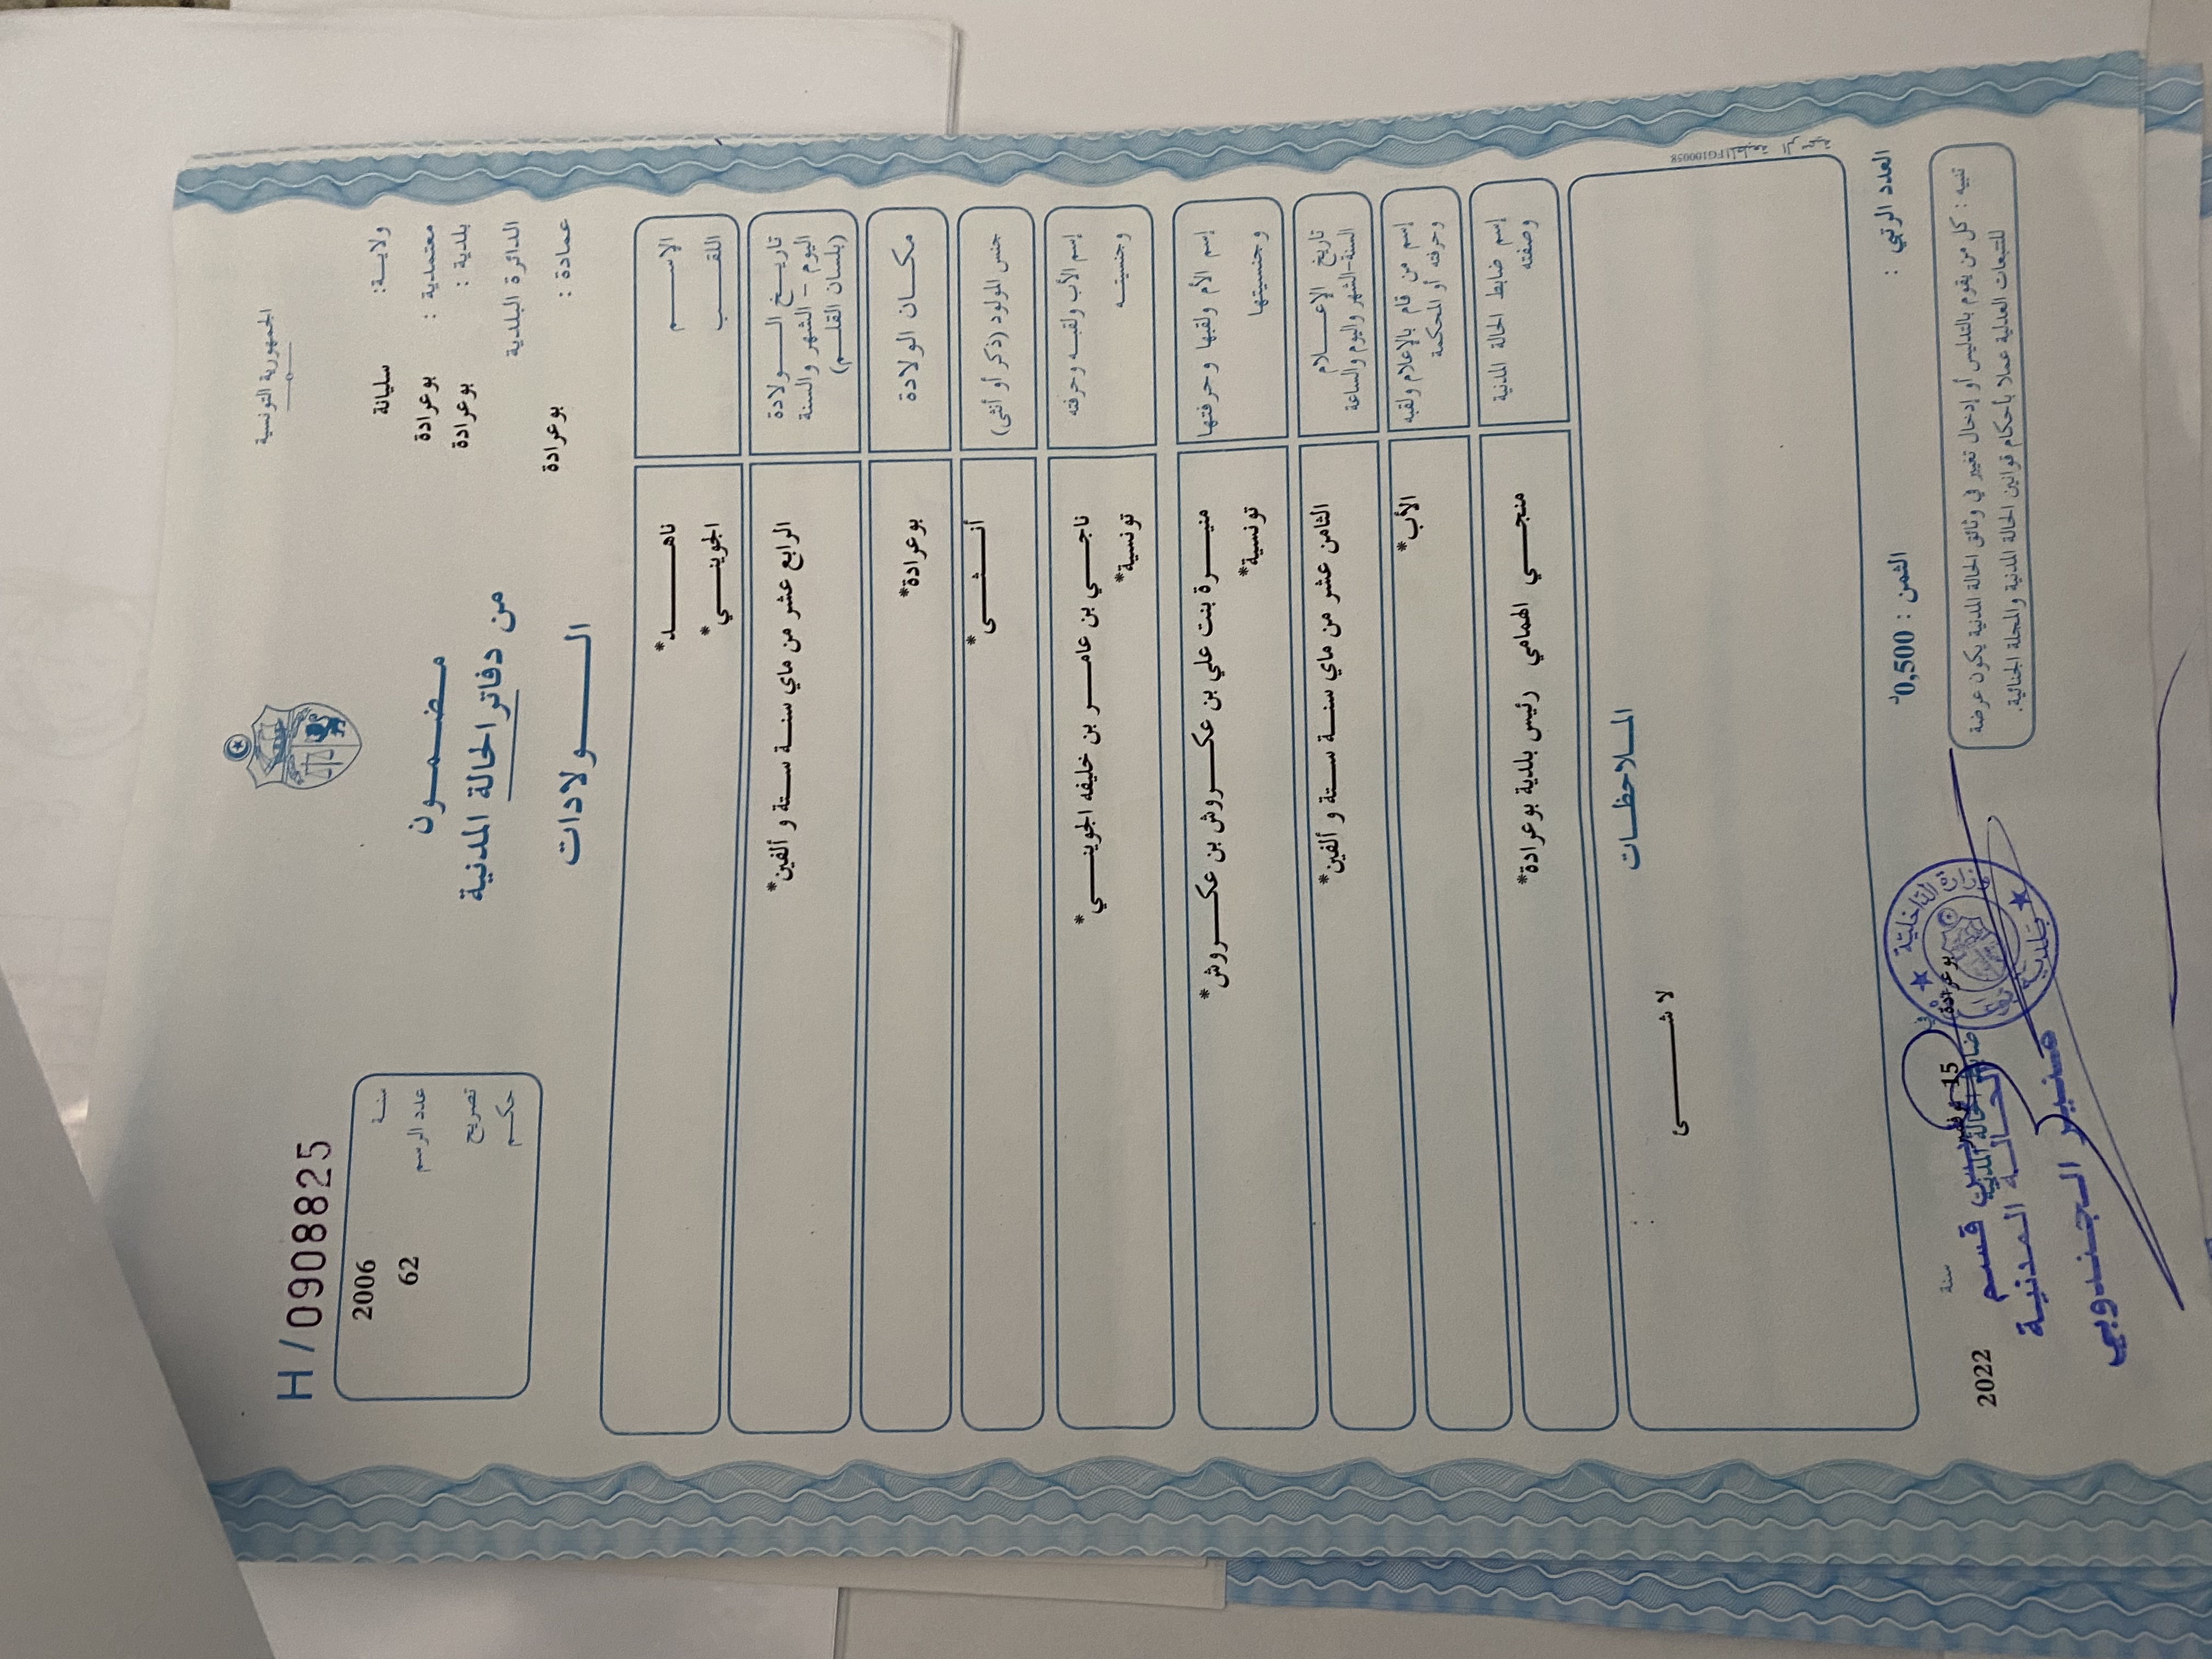 الجمهورية التونسية
H/0908825
ولاية: سليانة
معتمدية : بوعرادة
بلدية : بوعرادة
الدائرة البلدية
عمادة : بوعرادة
مضمون
من دفاتر الحالة المدنية
الولادات
سنة 2006
عدد الرسم 62
تصريح
حكم
الإسم ناهد*
اللقب الجويني*
تاريخ الولادة
اليوم – الشهر والسنة
(بلسان القلم)
الرابع عشر من ماي سنة ستة و ألفين*
مكان الولادة بوعرادة*
جنس المولود (ذكر أو أنثى) أنثى*
إسم الأب ولقبه وحرفته ناجي بن عامر بن خليفه الجويني*
وجنسيته تونسية*
إسم الأم ولقبها وحرفتها منيرة بنت علي بن عكروش بن عكروش*
وجنسيتها تونسية*
تاريخ الإعلام
السنة-الشهر واليوم والساعة
الثامن عشر من ماي سنة ستة و ألفين*
إسم من قام بالإعلام ولقبه
وحرفته أو المحكمة
الأب*
إسم ضابط الحالة المدنية
وصفته
منجي الهمامي رئيس بلدية بوعرادة*
الملاحظات
لا شئ
العدد الرتبي :
الثمن : 0,500د
بوعرادة في 15
سنة 2022
ضابط الحالة المدنية
قسم
الحالة المدنية
منير الجندوبي
وزارة الداخلية
بلدية
تنبيه : كل من يقوم بالتدليس أو إدخال تغيير في وثائق الحالة المدنية يكون عرضة
للتتبعات العدلية عملا بأحكام قوانين الحالة المدنية والمجلة الجنائية.